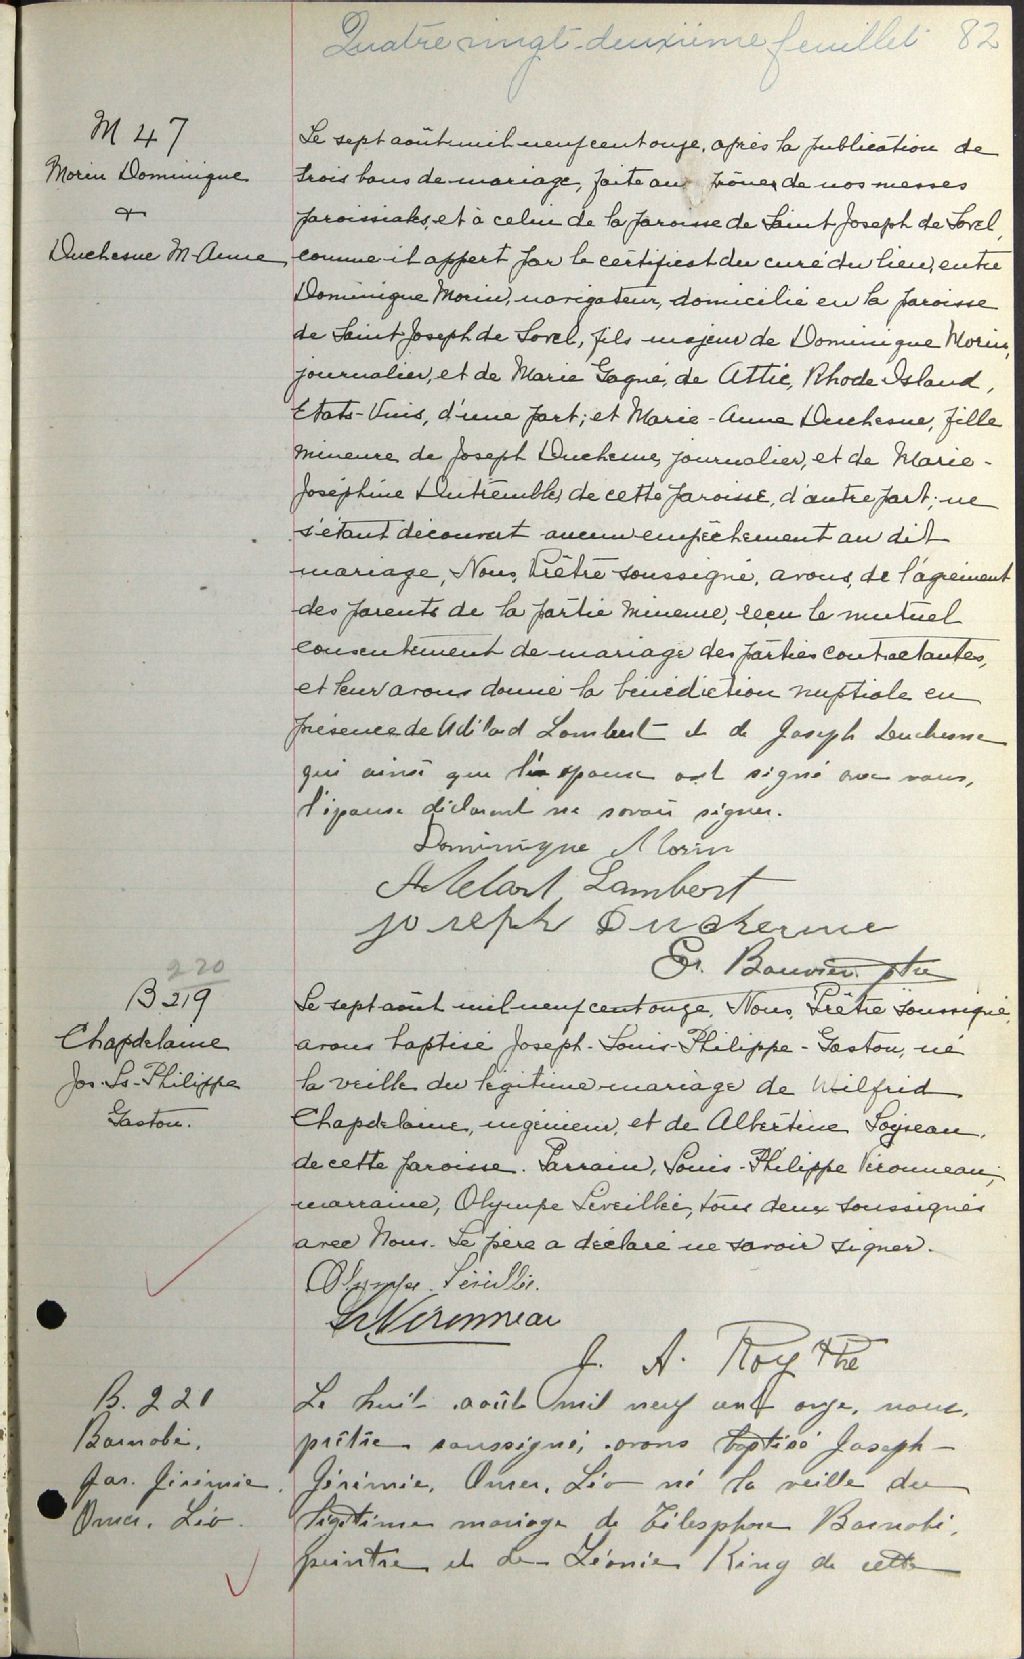 Quatre vingt-deuxième feuillet 82
M 47
Morin Dominique
&
Duchesne M-Anne
Le sept août mil neuf cent onze, après la publication de
trois bans de mariage, faite au prônes de nos messes
paroissiales, et à celui de la paroisse de Saint Joseph de Sorel,
comme il appert par le certificat du curé du lieu, entre
Dominique Morin, navigateur, domicilié en la paroisse
de Saint Joseph de Sorel, fils majeur de Dominique Morin,
journalier, et de Marie Gagné, de Attic, Rhode-Island,
Etats-Unis, d'une part; et Marie-Anne Duchesne, fille
mineure de Joseph Duchesne, journalier, et de Marie-
Joséphine Dutremble, de cette paroisse, d'autre part; ne
s'étant découvert aucun empêchement au dit
mariage, Nous, Prêtre soussigné, avons, de l'agrément
des parents de la partie mineure, reçu le mutuel
consentement de mariage des parties contractantes,
et leur avons donné la bénédiction nuptiale en
présence de Adélard Lambert et de Joseph Duchesne
qui ainsi que l'époux ont signé avec nous,
l'épouse déclarant ne savoir signer.
Dominique Morin
Adélard Lambert
Joseph Duchesne
Ptre
220
B 219
Chapdelaine
Jos-Ls-Philippe
Gaston.
Le sept août mil neuf cent onze, Nous, Prêtre soussigné,
avons baptisé Joseph-Louis-Philippe-Gaston, né
la veille du légitime mariage de Wilfrid
Chapdelaine, ingénieur, et de Albertine Loiseau,
de cette paroisse. Parrain, Louis-Philippe Véronneau;
marraine, Olympe Léveillée, tous deux soussignés
avec Nous. Le père a déclaré ne savoir signer.
Olympe Léveillée.
Véronneau
J. A. Roy Ptre
B. 221
Barnabé,
Jos. Jérémie,
Omer, Léo.
Le huit août mil neuf cent onze, nous,
prêtre soussigné, avons baptisé Joseph-
Jérémie, Omer, Léo né la veille du
légitime mariage de Télesphore Barnabé,
peintre et de Léonie King de cette